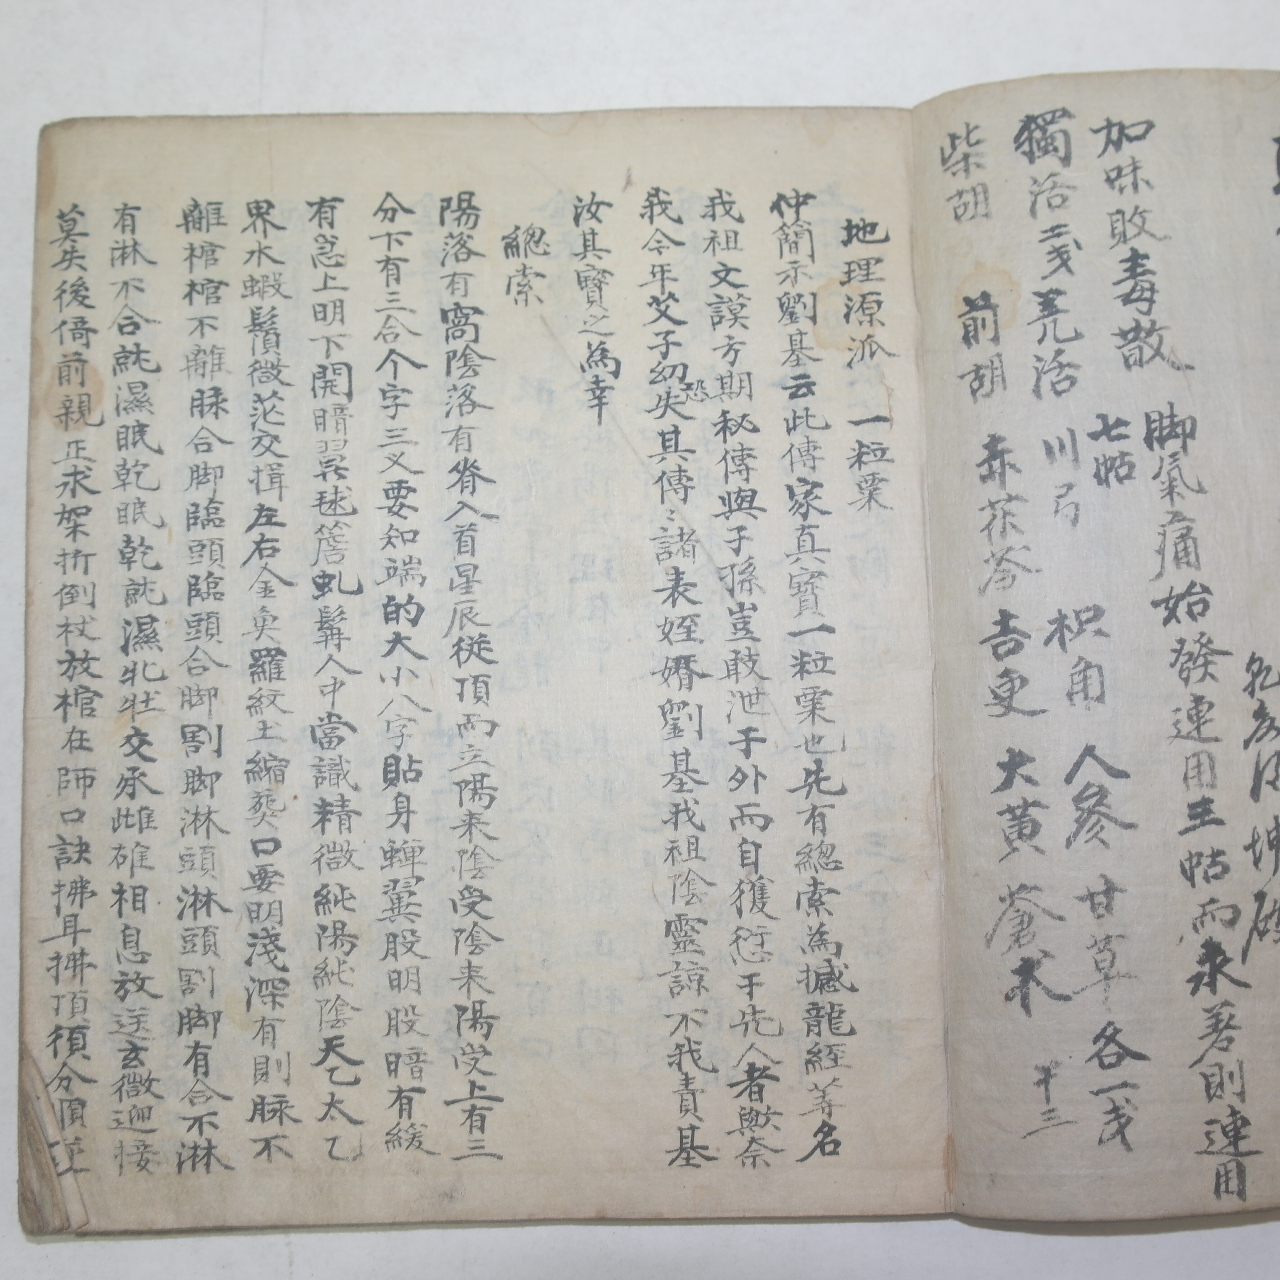 加味敗毒散 脚氣痛始發連用三帖而未差則連用
七帖
獨活二戔羌活 川弓 枳角 人參 甘草各一戔
柴胡 前胡 赤茯苓 吉更 大黃 蒼朮 干三
地理源派 一粒粟
仲簡示劉基云此傳家真寶一粒粟也先有總索為撼龍經等名
我祖文謨方期秘傳與子孫豈敢泄于外而自獲愆于先人者歟奈
我今年艾子幼恐失其傳〻諸表姪婿劉基我祖陰靈諒不我責基
汝其寶之為幸
總索
陽落有窩陰落有脊入首星辰從頂而立陽來陰受陰來陽受上有三
分下有三合个字三义要知端的大小八字貼身蟬翼股明股暗有緩
有急上明下開暗翼毬簷虬髯人中當識精微純陽純陰天乙太乙
界水蝦鬚微茫交揖左右金魚羅紋土縮葬口要明淺深有則脉不
離棺棺不離脉合脚臨頭臨頭合脚割脚淋頭淋頭割脚有合不淋
有淋不合就濕眠乾眠乾就濕牝牡交承雌雄相息放送玄微迎接
莫失後倚前親正求架折倒杖放棺在師口訣拂耳拂頂須分順逆